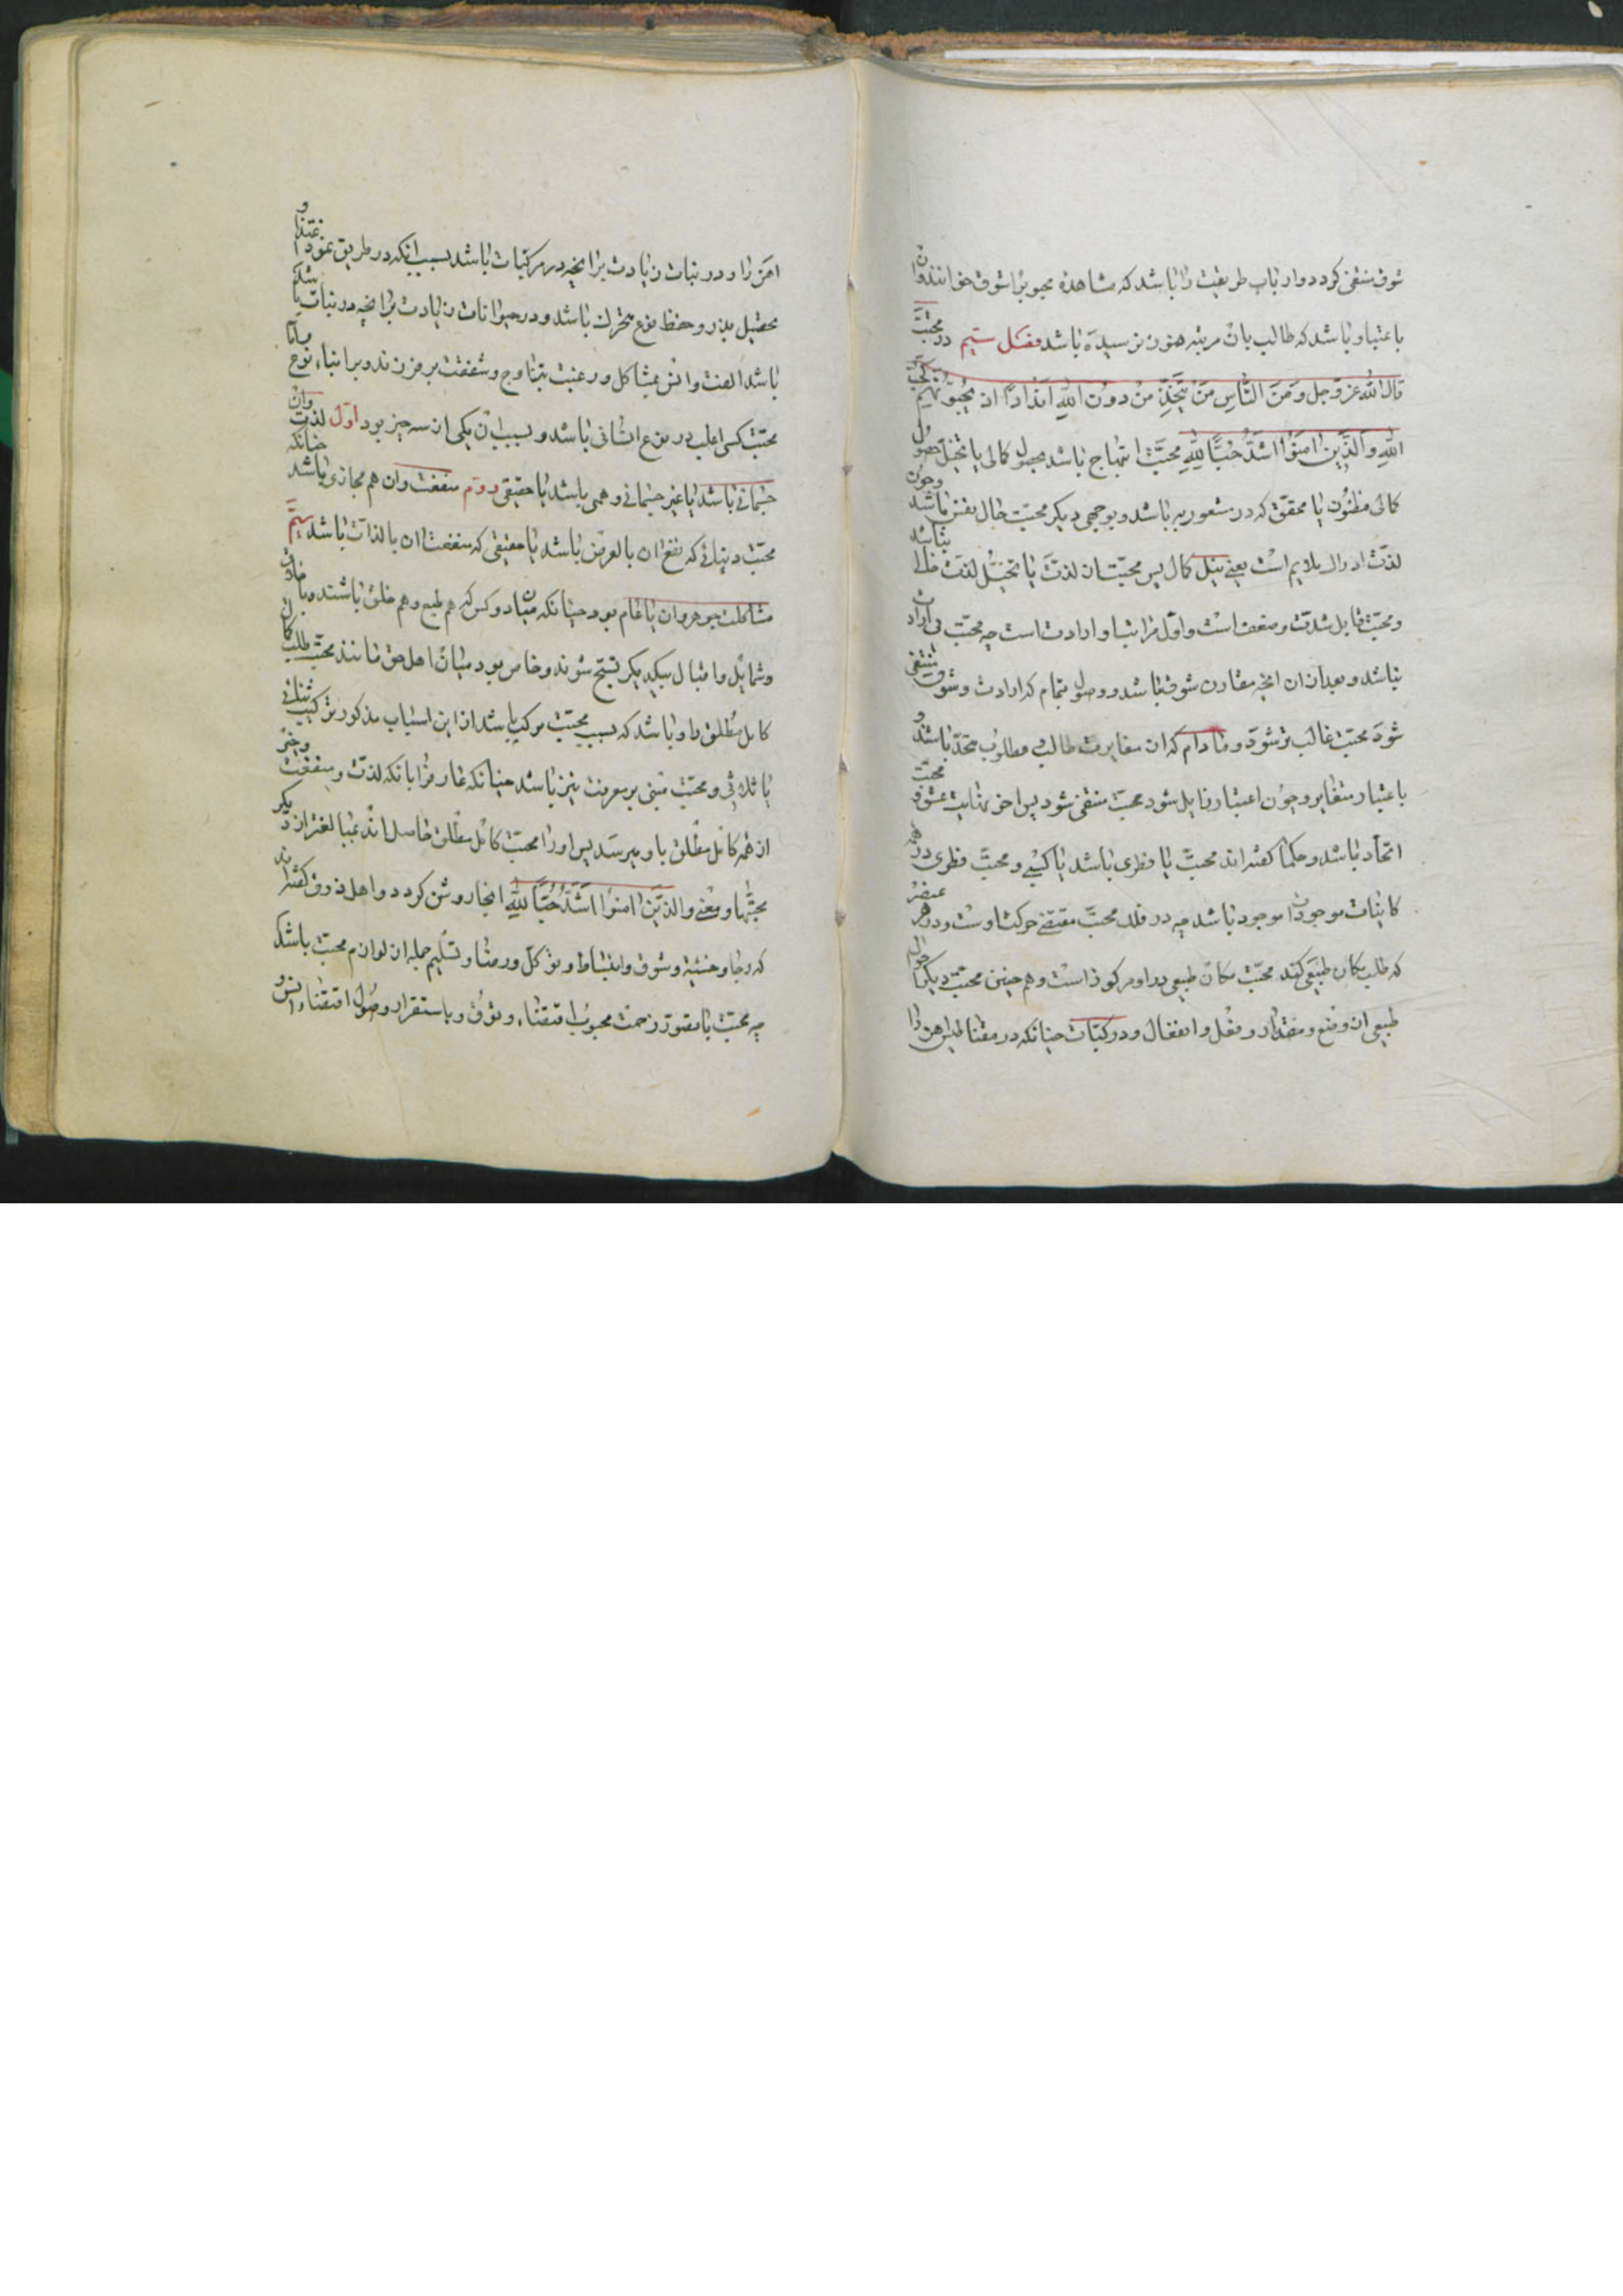 شوق منتفی کردد و ارباب طریقت را باشد که مشاهده محبوب را شوق خوانند و ان
باعتبار ان باشد که طالب بان مرتبه هنوز نرسیده باشد فصل سیم در محبت
قال الله عز و جل وَمِنَ النَّاسِ مَنْ يَتَّخِذُ مِنْ دُونِ اللهِ اَنْدَادًا يُحِبُّونَهُمْ كَحُبِّ
اللهِ وَالَّذِينَ امَنُوا اَشَدُّ حُبًّا لِلّٰهِ محبت ابتهاج باشد بحصول کمالی یا تخیل حصول
کمالی مظنون یا محقق که در مشعور به باشد و بوجهی دیکر محبت میل نفس باشد
لذت ادراک ملایم است یعنی نیل کمال پس محبت از لذت یا تخیل لذت خالی نباشد
و محبت قابل شدت و ضعف است و اول مراتب او ارادت است چه محبت بی ارادت
نباشد و بعد از ان انچه مقارن شوق باشد و وصول تمام که ارادت و شوق منتفی
شود محبت غالب تر شود و مادام که از مغایرت طالب و مطلوب
باعتبار متغایر و چون اعتبار زایل شود محبت منتفی شود پس اخر نهایت محبت و عشق
اتحاد باشد و حکما کفته اند محبت یا فطری باشد یا کسبی و محبت فطری در همه
کاینات موجود باشد چه در فلک محبت مقتضی حرکت اوست و در هر عنصر
که طلب مکان طبیعی کند محبت مکان طبیعی در او مرکوز است و هم چنین محبت دیکر احوال
طبیعی از وضع و مقدار و فعل و انفعال و در مرکبات چنانکه در مغناطیس اهن ربا
اهن را و در نبات زیادت بر انچه در مرکبات باشد بسبب انکه در طریق نمو و اغتذا
و تحصیل بذر و حفظ نوع متحرک باشد و در حیوانات زیادت بر انچه در نبات باشد
باشد الفت و انس بمشاکل و رغبت بتزاوج و شفقت بر فرزند و بر ابناء نوع و اما
محبت کسبی اغلب در نوع انسانی باشد و سبب ان یکی از سه چیز بود اول لذت و ان
جسمانی باشد یا غیر جسمانی وهمی باشد یا حقیقی دویم منفعت و ان هم مجازی باشد چنانکه
محبت دنیائی که نفع ان بالعرض باشد یا حقیقی که منفعت ان بالذات باشد سیم
مشاکلت جوهر و ان یا عام بود چنانکه میان دو کس که هم طبع و هم خلق باشند و باخلاق
و شمایل و افعال یکدیکر مبتهج شوند و خاص بود میان اهل حق مانند محبت طالب کمال
کامل مطلق را و باشد که سبب محبت مرکب باشد از این اسباب مذکور ترکیب ثنائی
یا ثلاثی و محبت مبنی بر معرفت نیز باشد چنانکه عارف را بانکه لذت و منفعت و خیر
از همه کامل مطلق باو میرسد پس او را محبت کامل مطلق حاصل اید بمبالغتر از دیکر
محبتها و معنی وَالَّذِينَ امَنُوا اَشَدُّ حُبًّا لِلّٰهِ اینجا روشن کردد و اهل ذوق کفته اند
که رجا و خشیة و شوق و انبساط و توکل و رضا و تسلیم جمله از لوازم محبت باشد
چه محبت با تصور رحمت محبوب اقتضاء